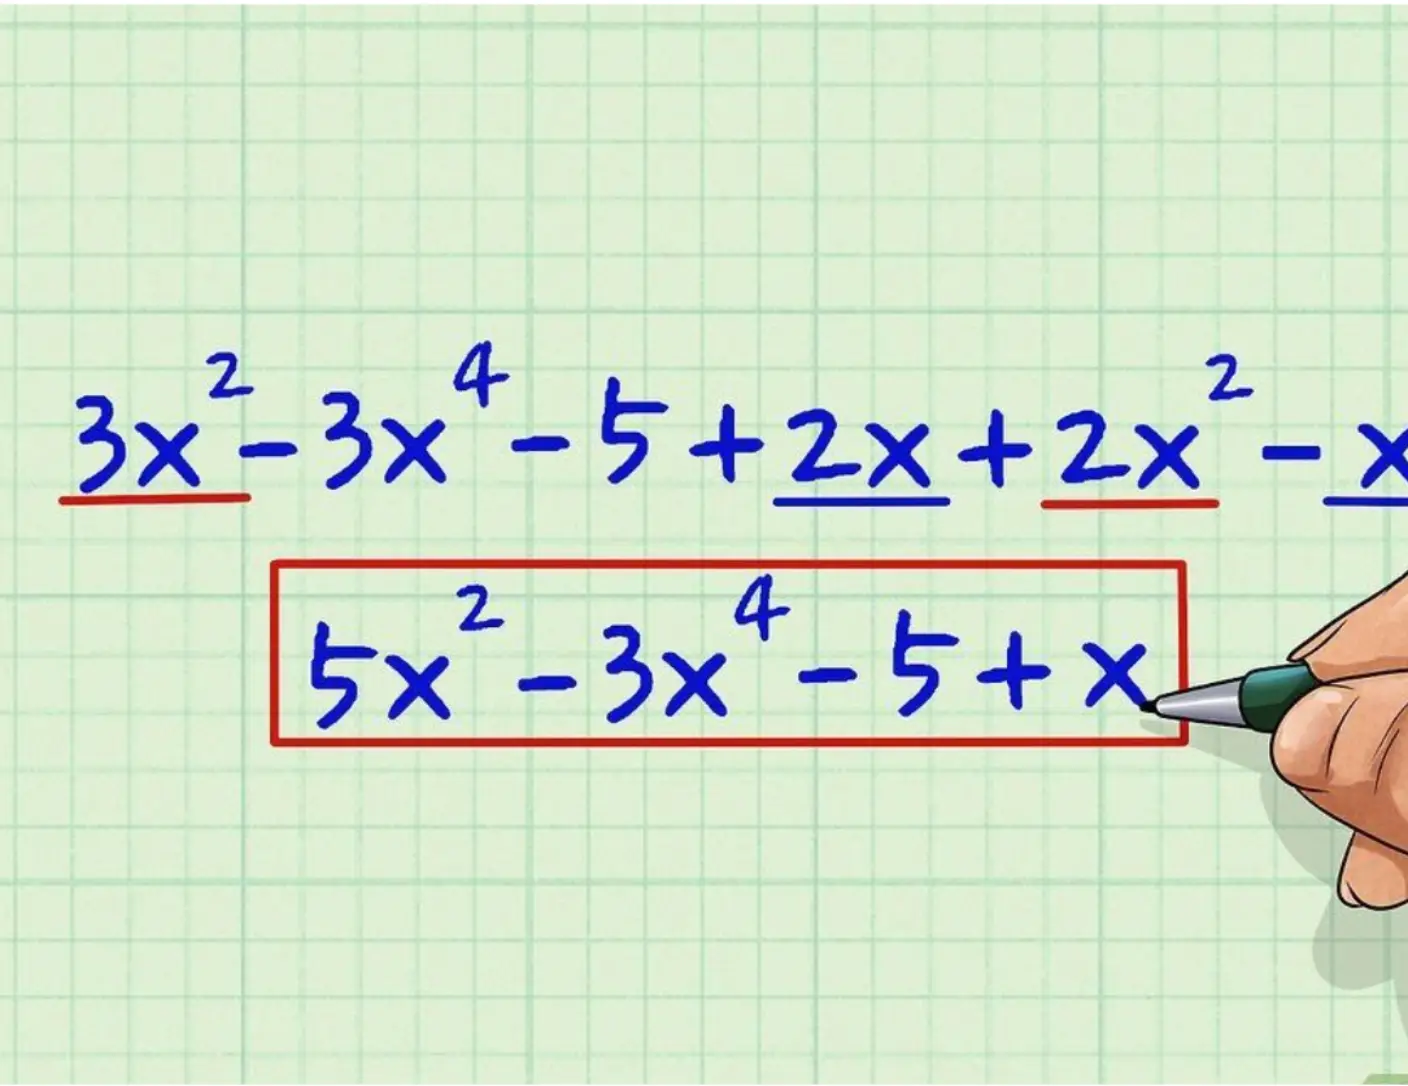 3x² - 3x⁴ - 5 + 2x + 2x² - x
5x² - 3x⁴ - 5 + x